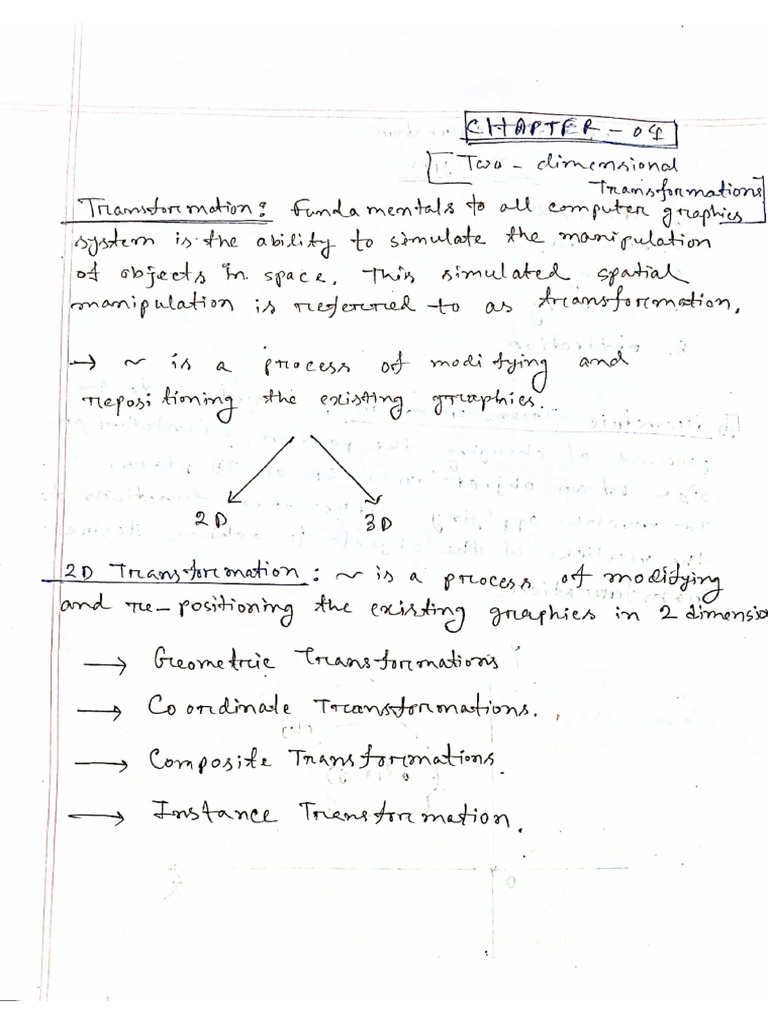 CHAPTER - 04
Two - dimensional
Transformations
Transformation: Fundamentals to all computer graphics
system is the ability to simulate the manipulation
of objects in space. This simulated spatial
manipulation is referred to as transformation.
→ ~ is a process of modifying and
repositioning the existing graphics.
2D 3D
2D Transformation: ~ is a process of modifying
and re-positioning the existing graphics in 2 dimensio
→ Geometric Transformations
→ Coordinate Transformations.
→ Composite Transformations.
→ Instance Transformation.